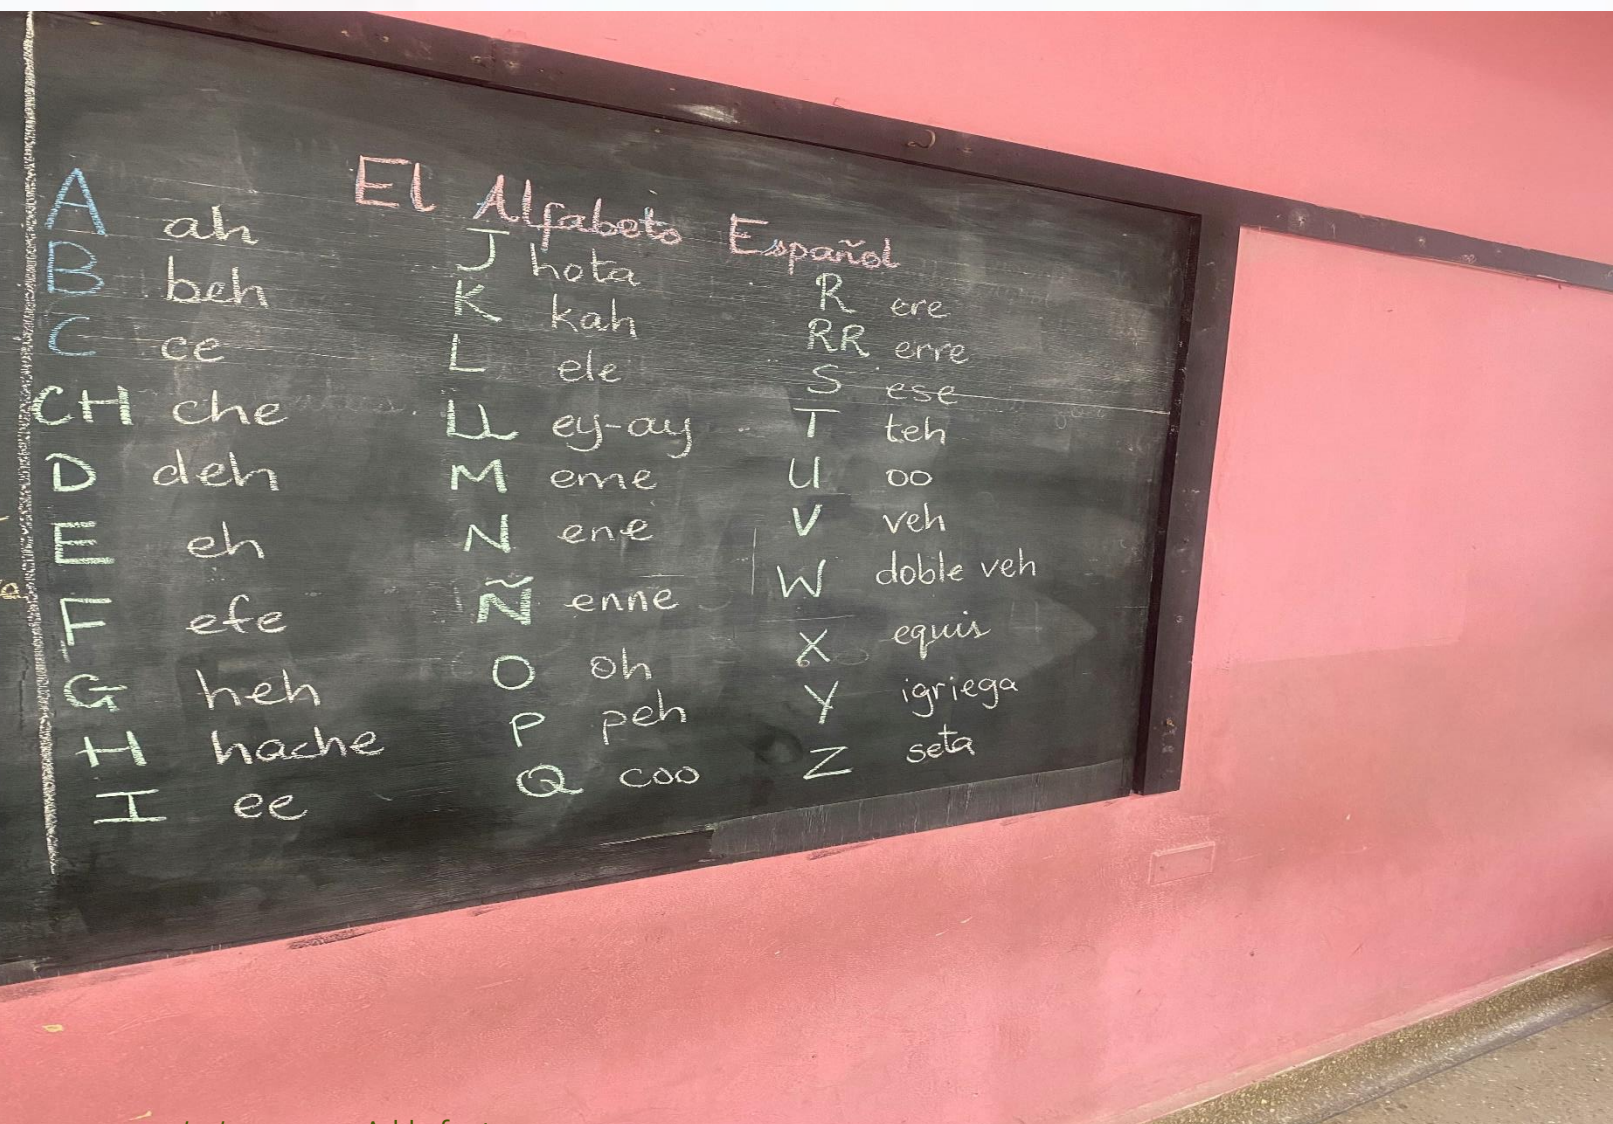 El Alfabeto Español
A ah
B beh
C ce
CH che
D deh
E eh
F efe
G heh
H hache
I ee
J hota
K kah
L ele
LL ey-ay
M eme
N ene
Ñ enne
O oh
P peh
Q coo
R ere
RR erre
S ese
T teh
U oo
V veh
W doble veh
X equis
Y igriega
Z seta